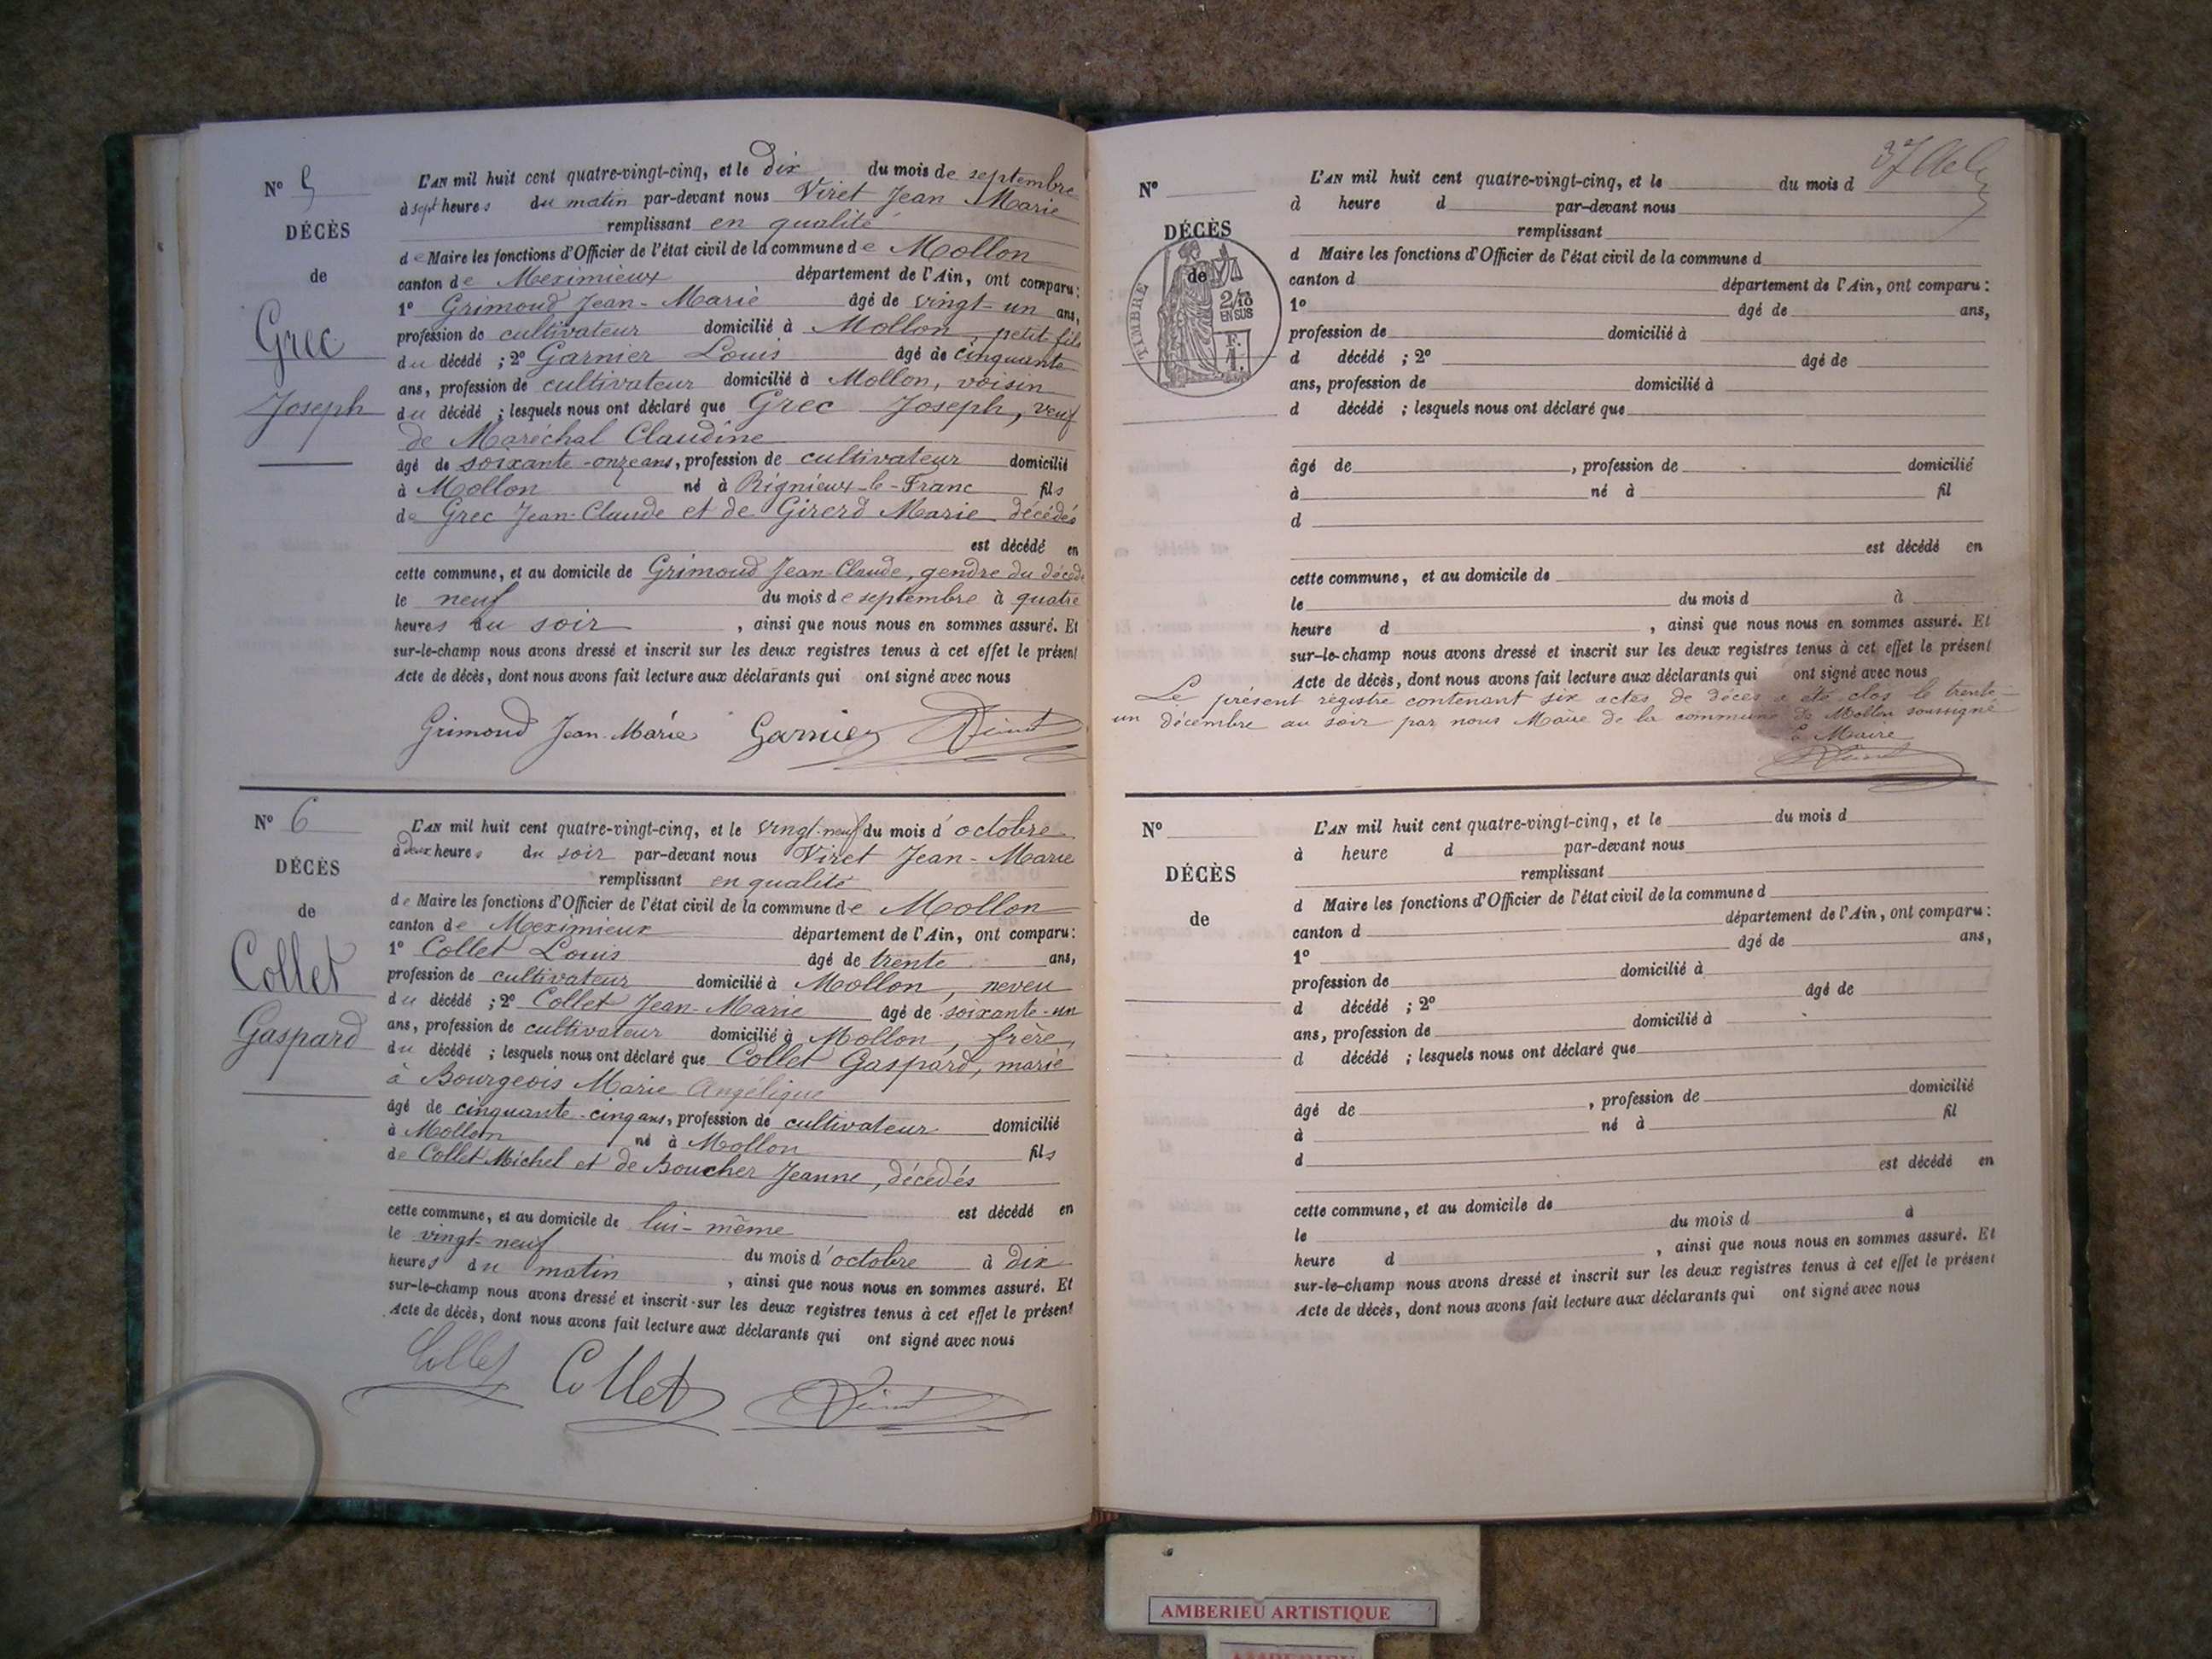 N° 5
DÉCÈS
de
Grec
Joseph
L'AN mil huit cent quatre-vingt-cinq, et le dix du mois de septembre
à sept heures du matin par-devant nous Viret Jean Marie
remplissant en qualité
de Maire les fonctions d'Officier de l'état civil de la commune de Mollon
canton de Meximieux département de l'Ain, ont comparu :
1° Grimoud Jean-Marie âgé de vingt-un ans,
profession de cultivateur domicilié à Mollon, petit-fils
du décédé ; 2° Garnier Louis âgé de cinquante
ans, profession de cultivateur domicilié à Mollon, voisin
du décédé ; lesquels nous ont déclaré que Grec Joseph, veuf
de Maréchal Claudine
âgé de soixante-onze ans, profession de cultivateur domicilié
à Mollon né à Rignieux-le-Franc fils
de Grec Jean-Claude et de Girerd Marie décédés
est décédé en
cette commune, et au domicile de Grimoud Jean-Claude, gendre du décédé
le neuf du mois de septembre à quatre
heures du soir , ainsi que nous nous en sommes assuré. Et
sur-le-champ nous avons dressé et inscrit sur les deux registres tenus à cet effet le présent
Acte de décès, dont nous avons fait lecture aux déclarants qui ont signé avec nous
Grimoud Jean-Marie Garnier Viret
N° 6
DÉCÈS
de
Collet
Gaspard
L'AN mil huit cent quatre-vingt-cinq, et le vingt-neuf du mois d'octobre
à deux heures du soir par-devant nous Viret Jean-Marie
remplissant en qualité
de Maire les fonctions d'Officier de l'état civil de la commune de Mollon
canton de Meximieux département de l'Ain, ont comparu :
1° Collet Louis âgé de trente ans,
profession de cultivateur domicilié à Mollon, neveu
du décédé ; 2° Collet Jean-Marie âgé de soixante-un
ans, profession de cultivateur domicilié à Mollon, frère
du décédé ; lesquels nous ont déclaré que Collet Gaspard, marié
à Bourgeois Marie Angélique
âgé de cinquante-cinq ans, profession de cultivateur domicilié
à Mollon né à Mollon fils
de Collet Michel et de Boucher Jeanne, décédés
est décédé en
cette commune, et au domicile de lui-même
le vingt-neuf du mois d'octobre à dix
heures du matin , ainsi que nous nous en sommes assuré. Et
sur-le-champ nous avons dressé et inscrit sur les deux registres tenus à cet effet le présent
Acte de décès, dont nous avons fait lecture aux déclarants qui ont signé avec nous
Collet Collet Viret
37
N°
DÉCÈS
de
TIMBRE
2/10
EN SUS
F.
1.
L'AN mil huit cent quatre-vingt-cinq, et le du mois d
à heure d par-devant nous
remplissant
d Maire les fonctions d'Officier de l'état civil de la commune d
canton d département de l'Ain, ont comparu :
1° âgé de ans,
profession de domicilié à
d décédé ; 2° âgé de
ans, profession de domicilié à
d décédé ; lesquels nous ont déclaré que
âgé de , profession de domicilié
à né à fil
d
est décédé en
cette commune, et au domicile de
le du mois d à
heure d , ainsi que nous nous en sommes assuré. Et
sur-le-champ nous avons dressé et inscrit sur les deux registres tenus à cet effet le présent
Acte de décès, dont nous avons fait lecture aux déclarants qui ont signé avec nous
Le présent registre contenant six actes de décès a été clos le trente-
un décembre au soir par nous Maire de la commune de Mollon soussigné
Le Maire
Viret
N°
DÉCÈS
de
L'AN mil huit cent quatre-vingt-cinq, et le du mois d
à heure d par-devant nous
remplissant
d Maire les fonctions d'Officier de l'état civil de la commune d
canton d département de l'Ain, ont comparu :
1° âgé de ans,
profession de domicilié à
d décédé ; 2° âgé de
ans, profession de domicilié à
d décédé ; lesquels nous ont déclaré que
âgé de , profession de domicilié
à né à fil
d
est décédé en
cette commune, et au domicile de
le du mois d à
heure d , ainsi que nous nous en sommes assuré. Et
sur-le-champ nous avons dressé et inscrit sur les deux registres tenus à cet effet le présent
Acte de décès, dont nous avons fait lecture aux déclarants qui ont signé avec nous
AMBERIEU ARTISTIQUE
AMBERIEU